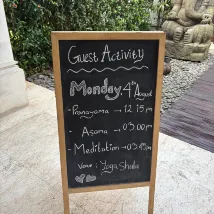 Guest Activity
Monday, 4th August
- Pranayama → 12:15 pm
- Asana → 03:00 pm
- Meditation → 03:45 pm
Venue : Yoga Shala